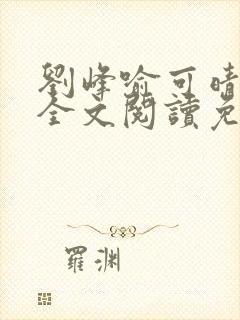 劉峰喻可晴
全文閱讀免
羅渊